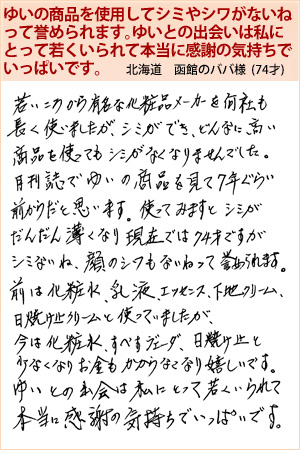 ゆいの商品を使用してシミやシワがないね
って誉められます。ゆいとの出会いは私に
とって若くいられて本当に感謝の気持ちで
いっぱいです。 北海道 函館のババ様 (74才)
若いころから有名な化粧品メーカーを何社も
長く使いましたが、シミができ、どんなに高い
商品を使ってもシミがなくなりませんでした。
月刊誌でゆいの商品を見て7年ぐらい
前からだと思います。使ってみますとシミが
だんだん薄くなり現在では74才ですが
シミないね、顔のシワもないねって誉められます。
前は化粧水、乳液、エッセンス、下地クリーム、
日焼け止クリームと使っていましたが、
今は化粧水、すべすべジェーダ、日焼け止と
少なくなりお金もかからなくなり嬉しいです。
ゆいとの出会は私にとって若くいられて
本当に感謝の気持ちでいっぱいです。